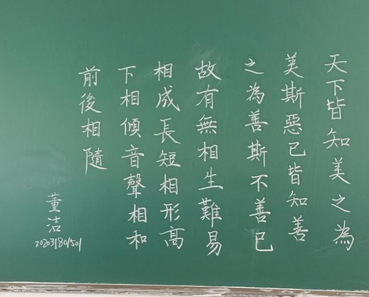 天下皆知美之為
美斯惡已皆知善
之為善斯不善已
故有無相生難易
相成長短相形高
下相傾音聲相和
前後相隨
董洁
20203180501